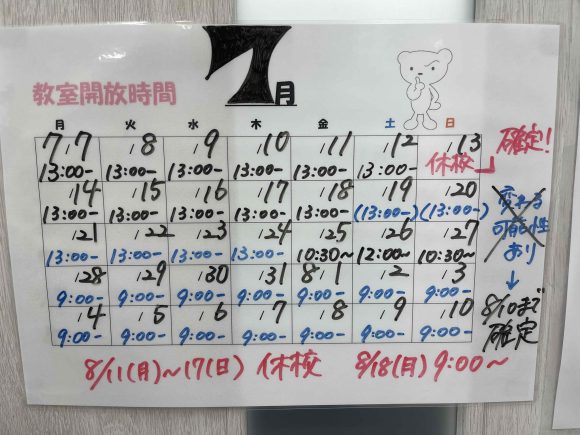 7月
教室開放時間
月 火 水 木 金 土 日
7/7 /8 /9 /10 /11 /12 /13
13:00- 13:00- 13:00- 13:00- 13:00- 13:00- 休校
確定!!
/14 /15 /16 /17 /18 /19 /20
13:00- 13:00- 13:00- 13:00- 13:00- (13:00-) (13:00-)
変わる
可能性
あり
/21 /22 /23 /24 /25 /26 /27
13:00- 13:00- 13:00- 13:00- 10:30~ 12:00~ 10:30~
/28 /29 /30 /31 8/1 /2 /3
9:00- 9:00- 9:00- 9:00- 9:00- 9:00- 9:00-
↓
8/10まで
確定
/4 /5 /6 /7 /8 /9 /10
9:00- 9:00- 9:00- 9:00- 9:00- 9:00- 9:00-
8/11(月)~17(日) 休校 8/18(月) 9:00~